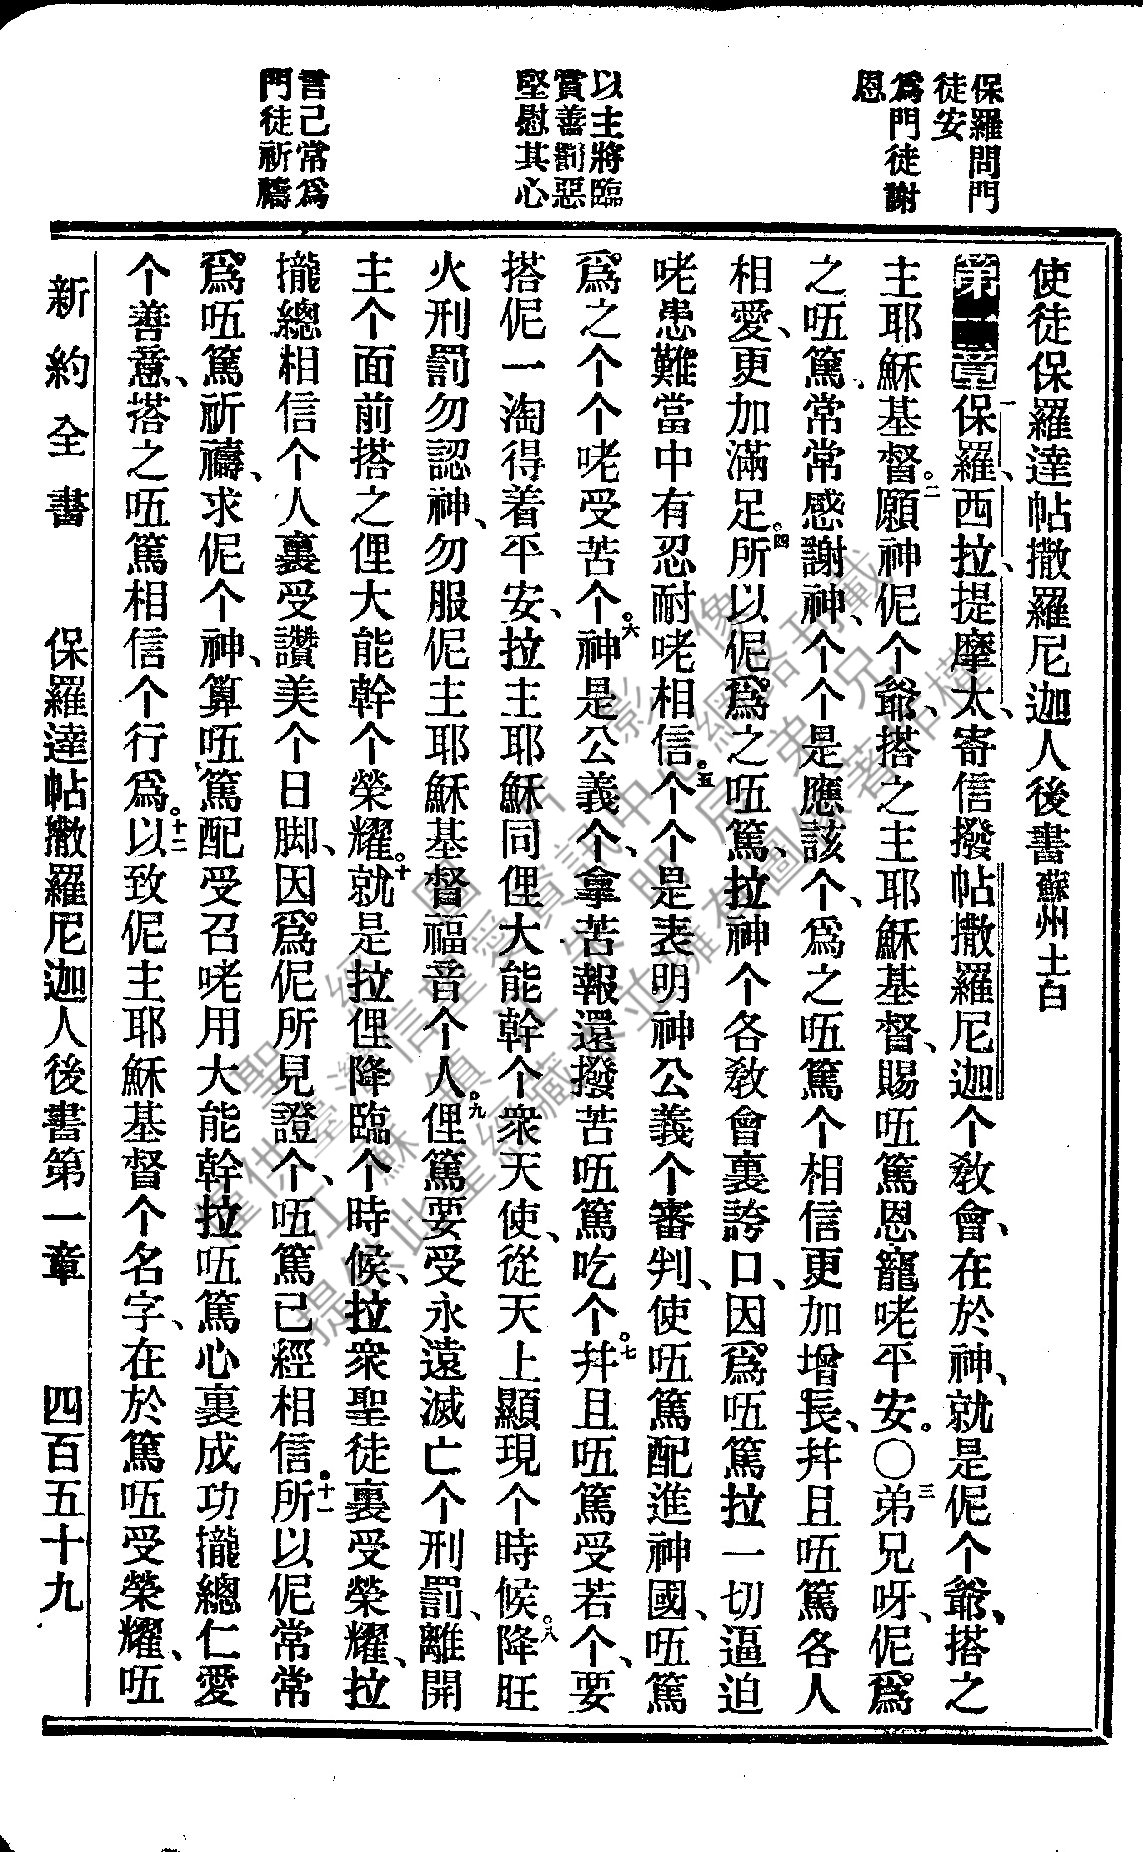 保羅問門
徒安
爲門徒謝
恩
以主將臨
賞善罰惡
堅慰其心
言己常爲
門徒祈禱
使徒保羅達帖撒羅尼迦人後書 蘇州土白
第一章 一保羅、西拉、提摩太、寄信撥帖撒羅尼迦个敎會、在於神、就是伲个爺、搭之
主耶穌基督。二願神伲个爺、搭之主耶穌基督、賜㕶篤恩寵咾平安。○三弟兄呀、伲爲
之㕶篤常常感謝神、个个是應該个、爲之㕶篤个相信更加增長、幷且㕶篤各人
相愛、更加滿足。四所以伲爲之㕶篤、拉神个各敎會裏誇口、因爲㕶篤拉一切逼迫
咾患難當中有忍耐咾相信。五个个是表明神公義个審判、使㕶篤配進神國、㕶篤
爲之个个咾受苦个。六神是公義个、拿苦報還撥苦㕶篤吃个。七幷且㕶篤受苦个、要
搭伲一淘得着平安、拉主耶穌同俚大能幹个衆天使、從天上顯現个時候。八降旺
火刑罰勿認神、勿服伲主耶穌基督福音个人。九俚篤要受永遠滅亡个刑罰、離開
主个面前搭之俚大能幹个榮耀。十就是拉俚降臨个時候、拉衆聖徒裏受榮耀、拉
攏總相信个人裏受讚美个日脚、因爲伲所見證个、㕶篤已經相信。十一所以伲常常
爲㕶篤祈禱、求伲个神、算㕶篤配受召咾用大能幹拉㕶篤心裏成功攏總仁愛
个善意、搭之㕶篤相信个行爲。十二以致伲主耶穌基督个名字、在於篤㕶受榮耀、㕶
新約全書 保羅達帖撒羅尼迦人後書第一章 四百五十九